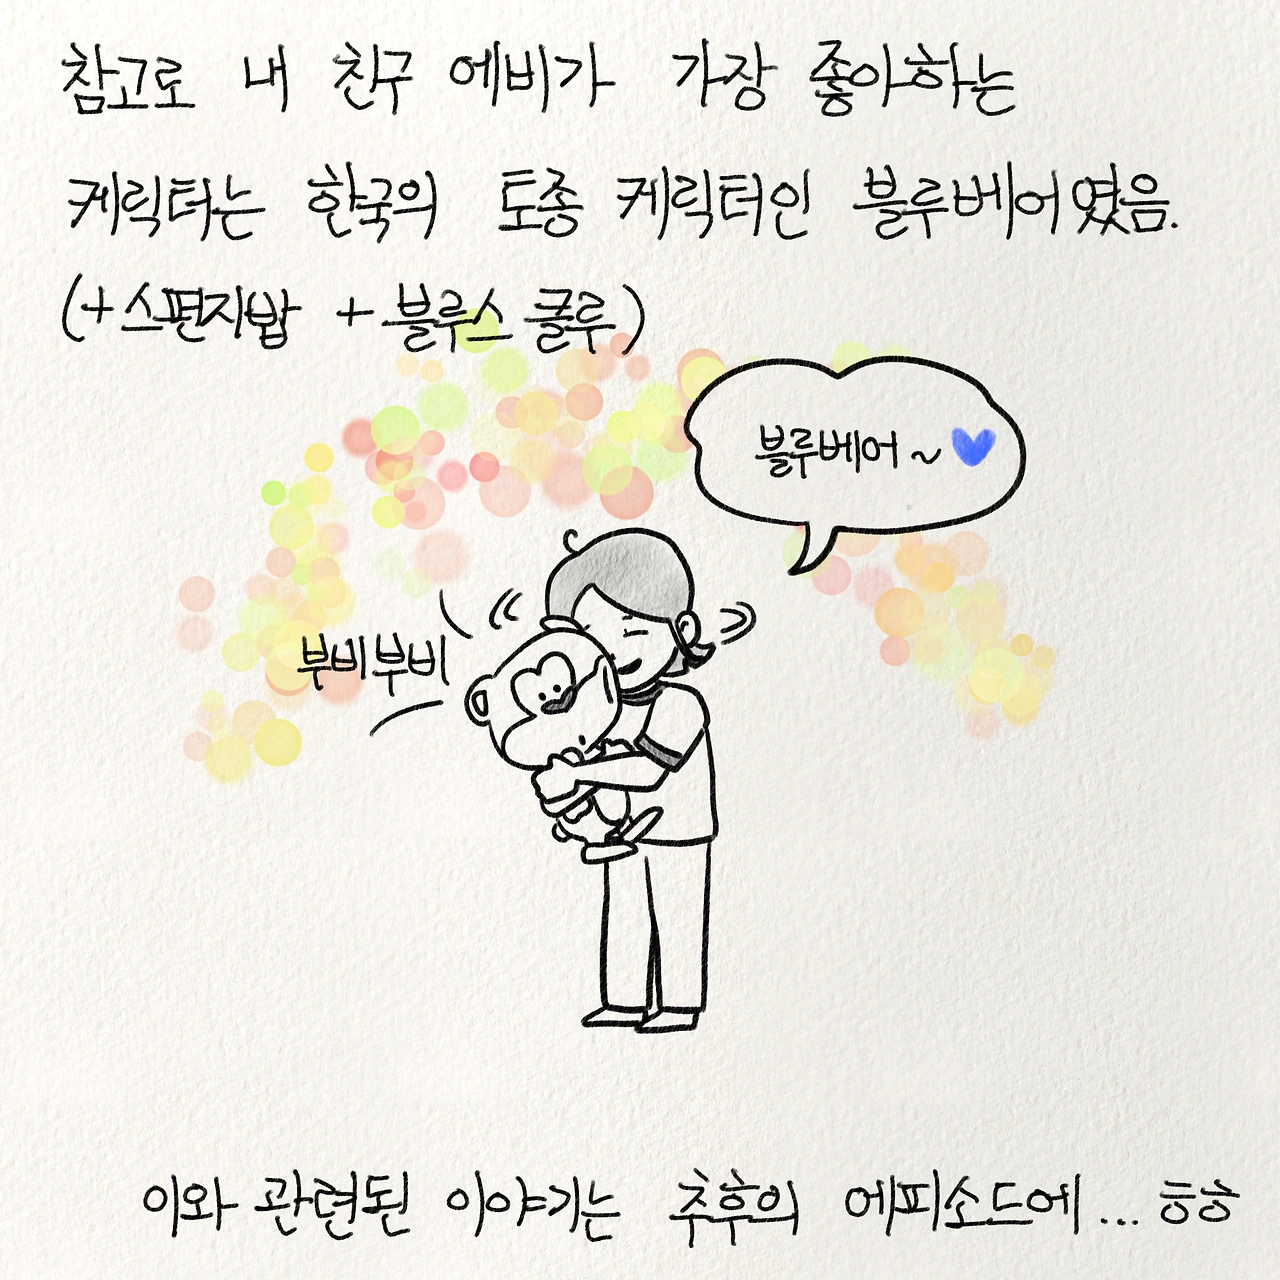 참고로 내 친구 에비가 가장 좋아하는
케릭터는 한국의 토종 케릭터인 블루베어였음.
(+스펀지밥 +블루스 클루)
블루베어~💙
부비부비
이와 관련된 이야기는 추후의 에피소드에... ㅎㅎ